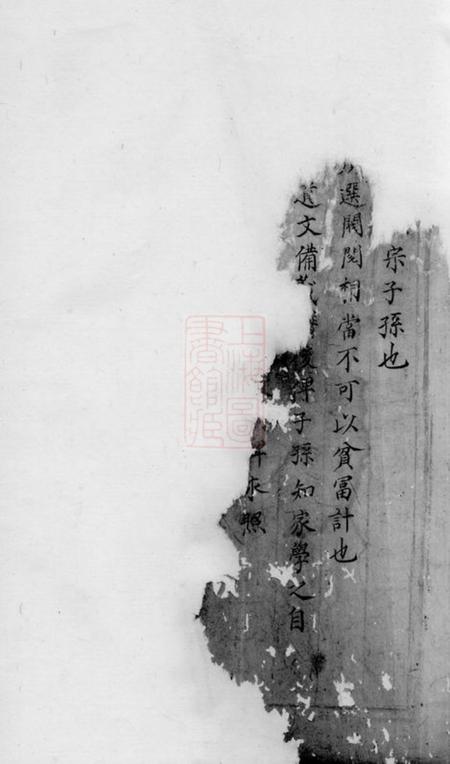 宗子孫也
選閥閱相當不可以貧冨計也
文備載後俾子孫知家學之自
永照
上海圖書館藏